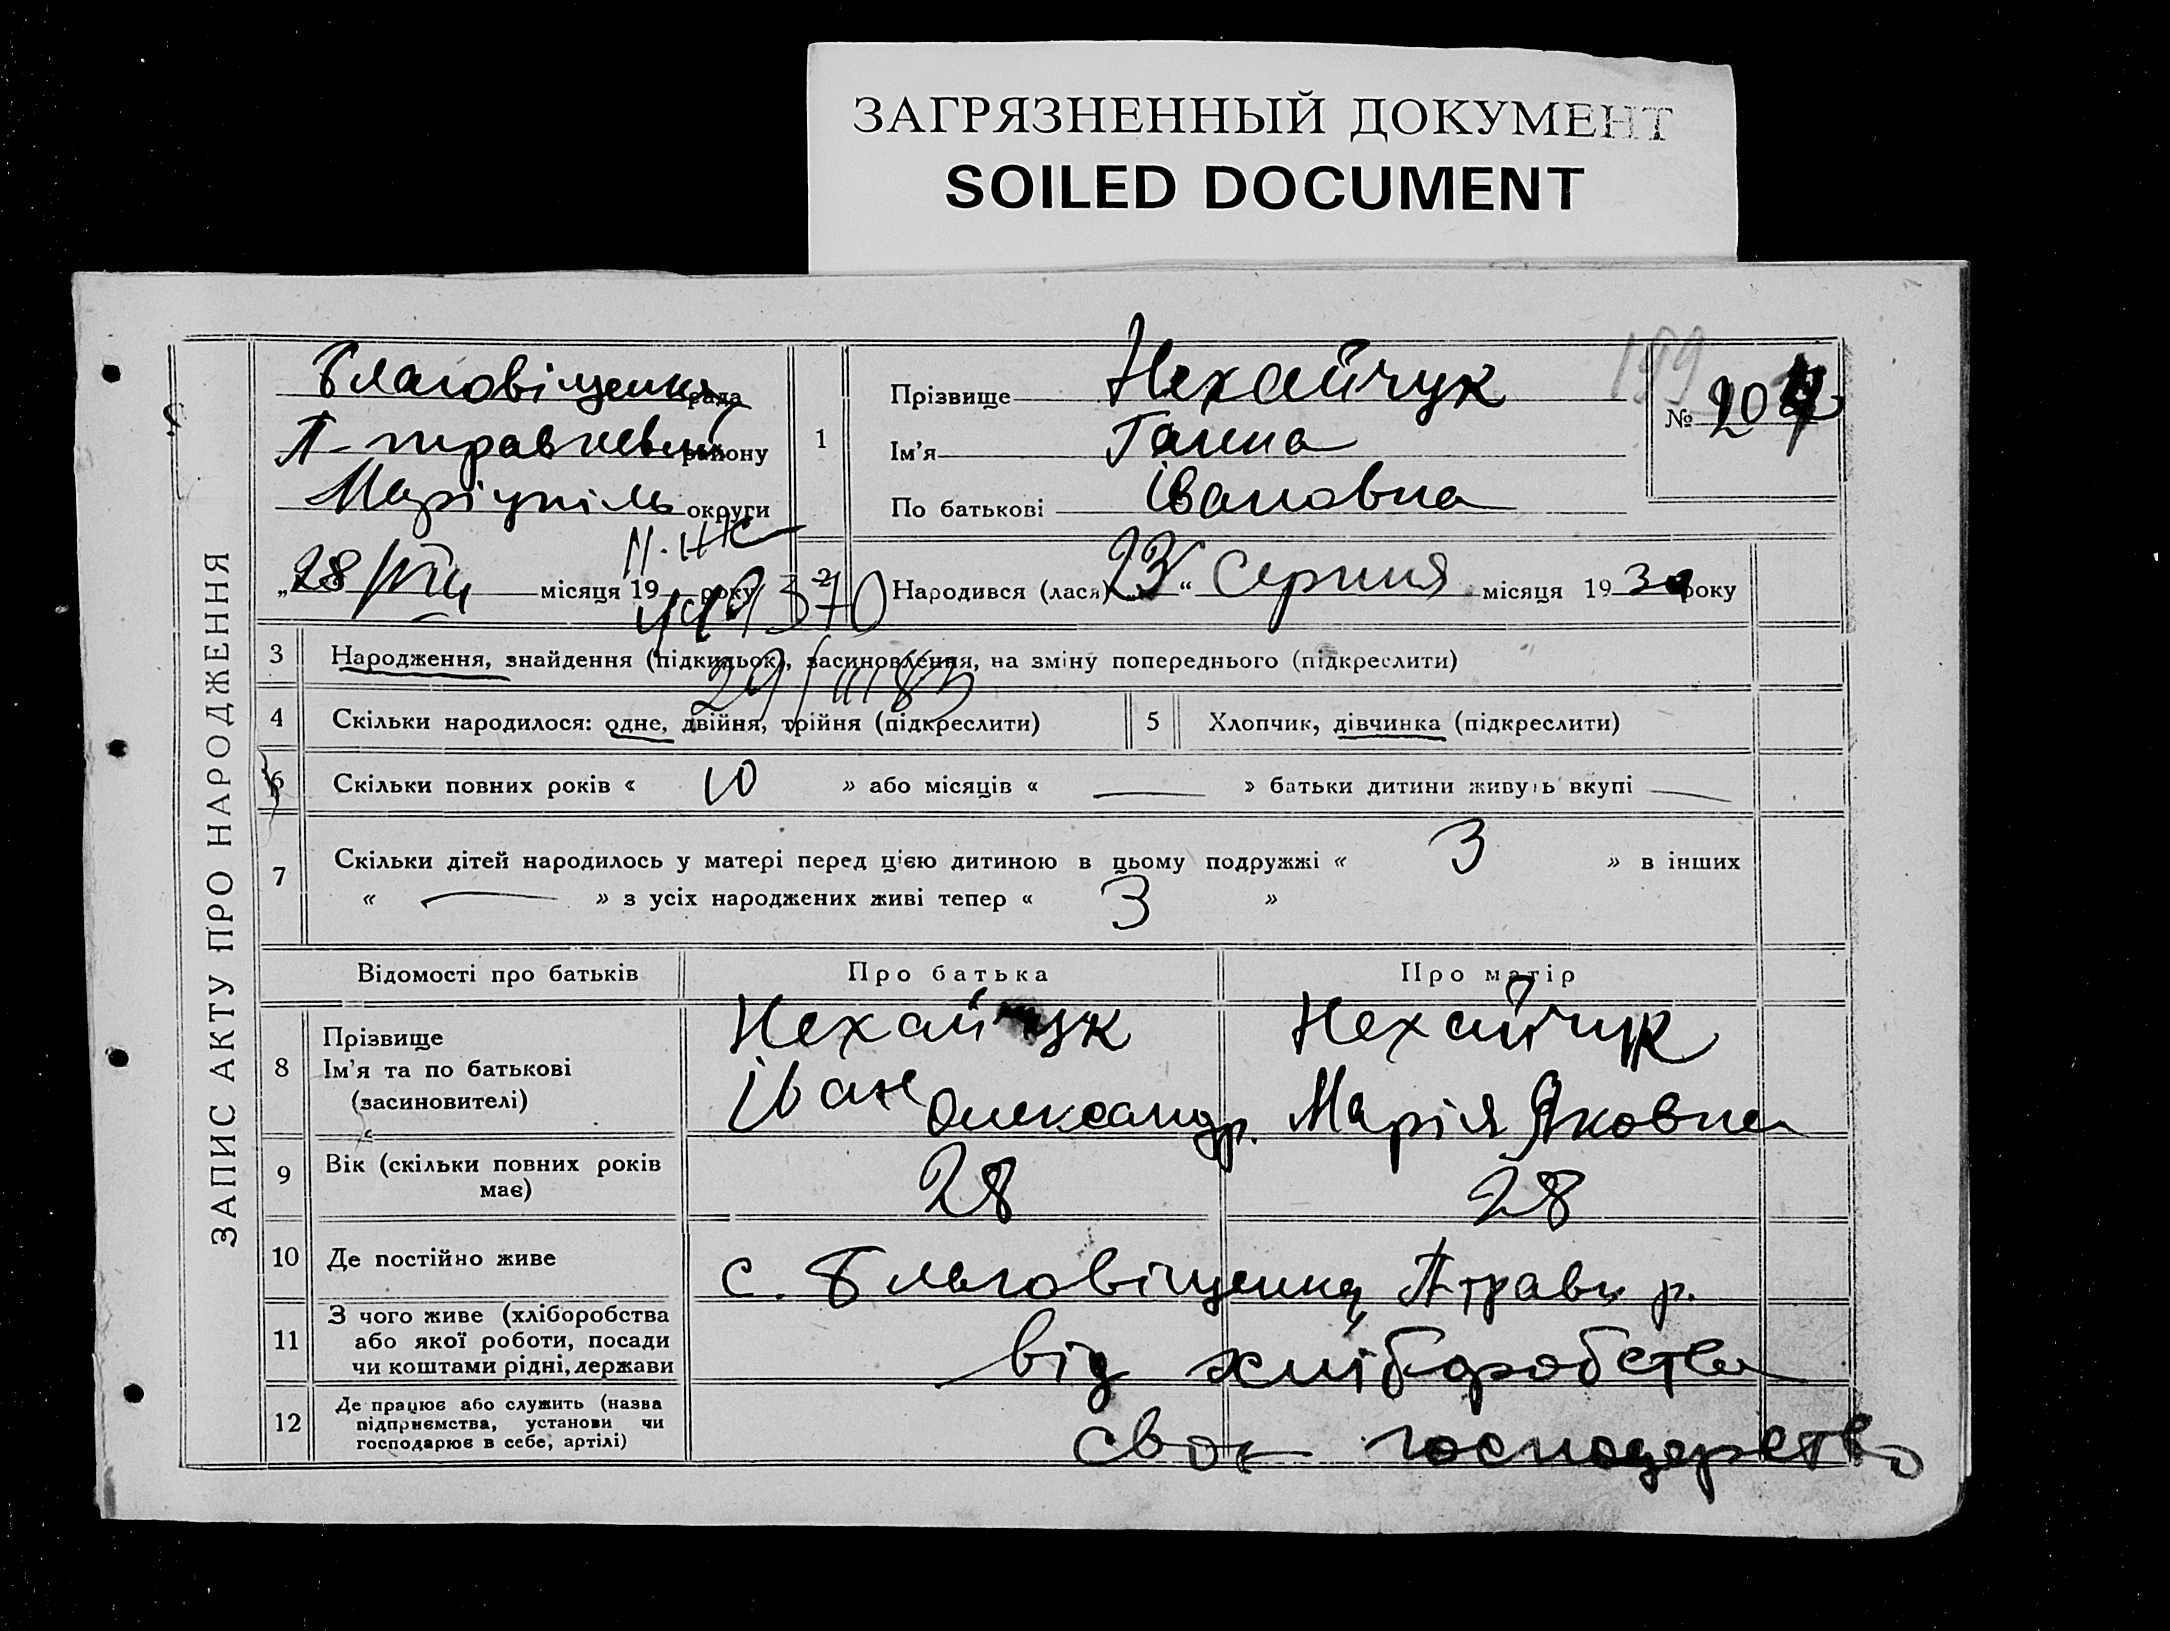 ЗАГРЯЗНЕННЫЙ ДОКУМЕНТ
SOILED DOCUMENT
ЗАПИС АКТУ ПРО НАРОДЖЕННЯ
Благовіщенка рада
П-травневий району
Маріупіль округи
„28 місяця 19 року
1
Прізвище Нехайчук
Ім'я Ганна
По батькові Івановна
199
№ 207
2
Народився (лася) „23“ Серпня місяця 1930 року
29/III 83
3 Народження, знайдення (підкидьок), засиновлення, на зміну попереднього (підкреслити)
4 Скільки народилося: одне, двійня, трійня (підкреслити)
5 Хлопчик, дівчинка (підкреслити)
6 Скільки повних років « 10 » або місяців « — » батьки дитини живуть вкупі —
7 Скільки дітей народилось у матері перед цією дитиною в цьому подружжі « 3 » в інших
« — » з усіх народжених живі тепер « 3 »
Відомості про батьків Про батька Про матір
8 Прізвище
Ім'я та по батькові
(засиновителі)
Нехайчук
Іван Олександр.
Нехайчук
Марія Яковна
9 Вік (скільки повних років
має)
28 28
10 Де постійно живе
с. Благовіщенка П травн р.
11 З чого живе (хліборобства
або якої роботи, посади
чи коштами рідні, держави
від хліборобства
12 Де працює або служить (назва
підприємства, установи чи
господарює в себе, артілі)
своє господарство